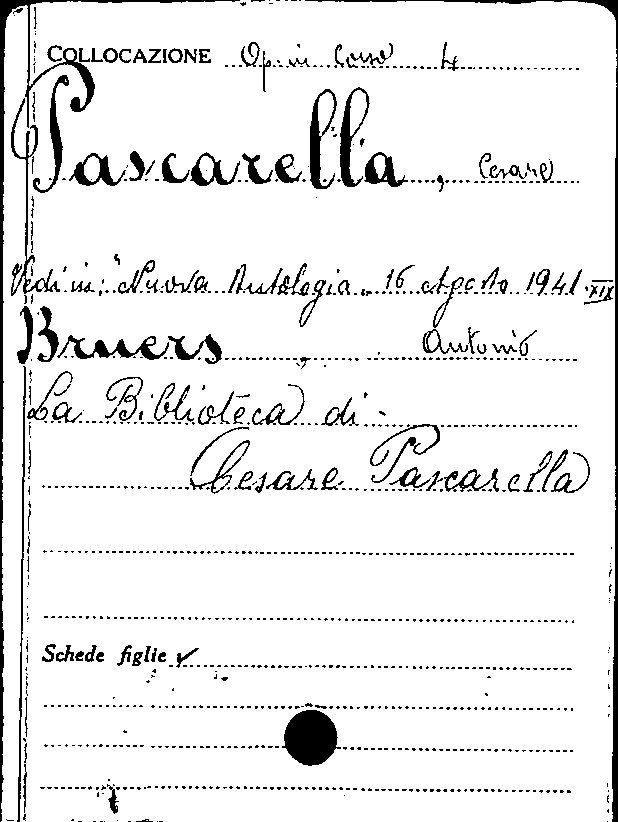 COLLOCAZIONE Op. in Corso 4
Pascarella, Cesare
Vedi in: "Nuova Antologia" 16 Agosto 1941-XIX
Bruers, Antonio
La Biblioteca di -
Cesare Pascarella
Schede figlie ✓